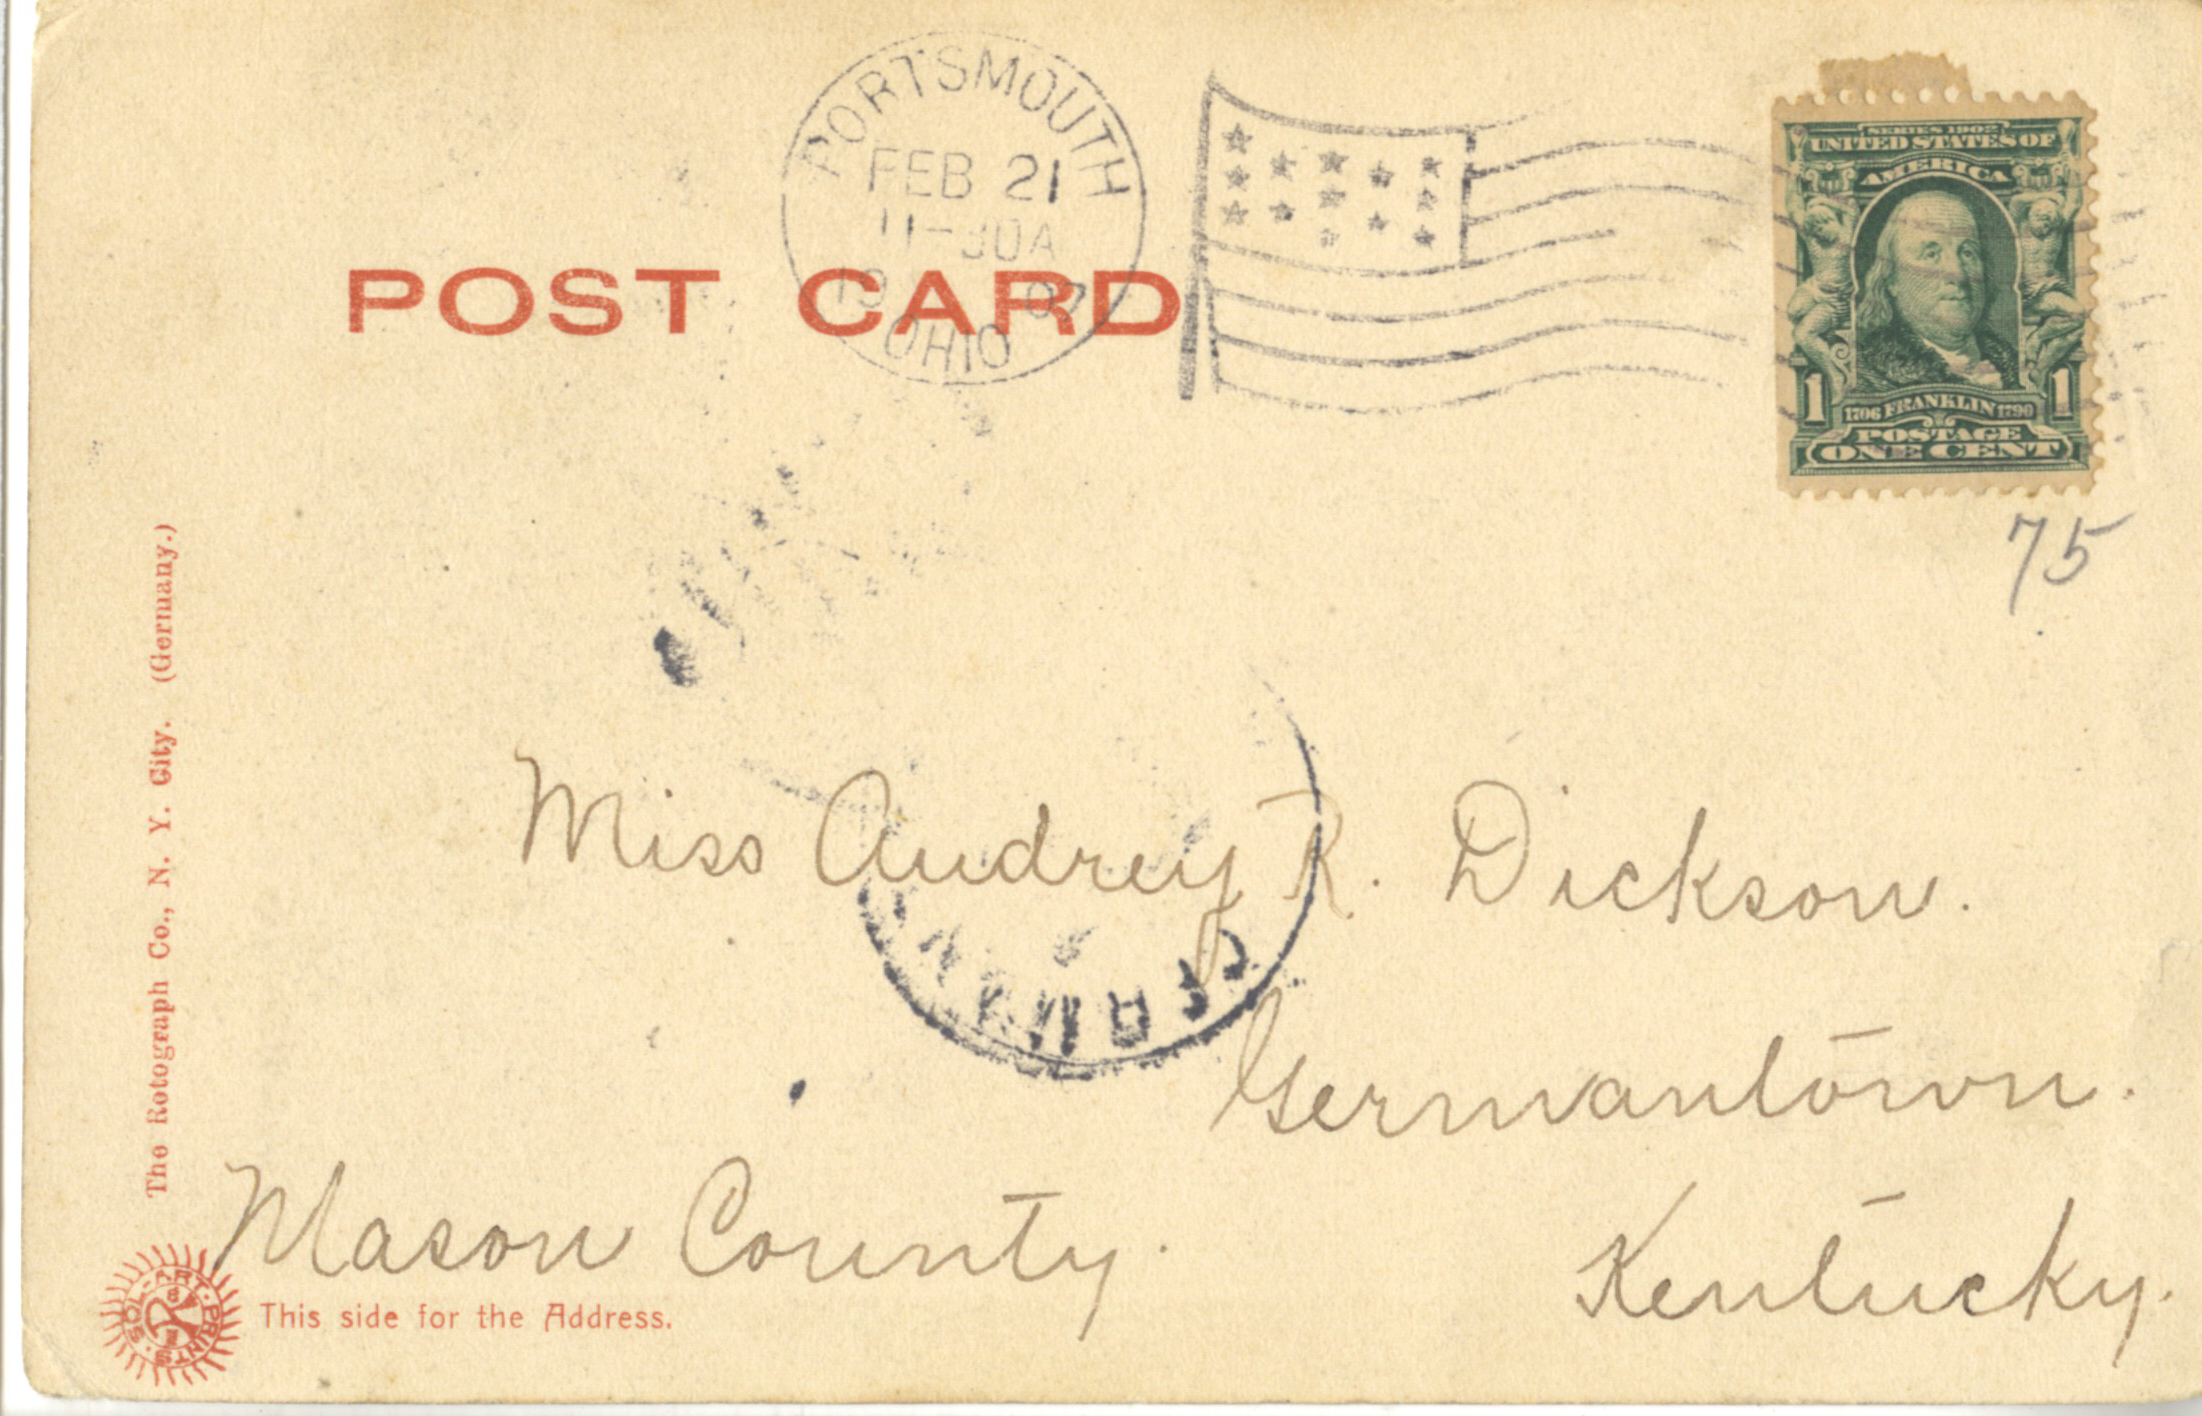 PORTSMOUTH
FEB 21
11-30A
19 07
OHIO
POST CARD
SERIES 1902
UNITED STATES OF
AMERICA
1 1706 FRANKLIN 1790 1
POSTAGE
ONE CENT
75
The Rotograph Co., N. Y. City. (Germany.)
Miss Audrey R. Dickson.
Germantown.
Mason County.
Kentucky.
SOL-ART-PRINTS
This side for the Address.